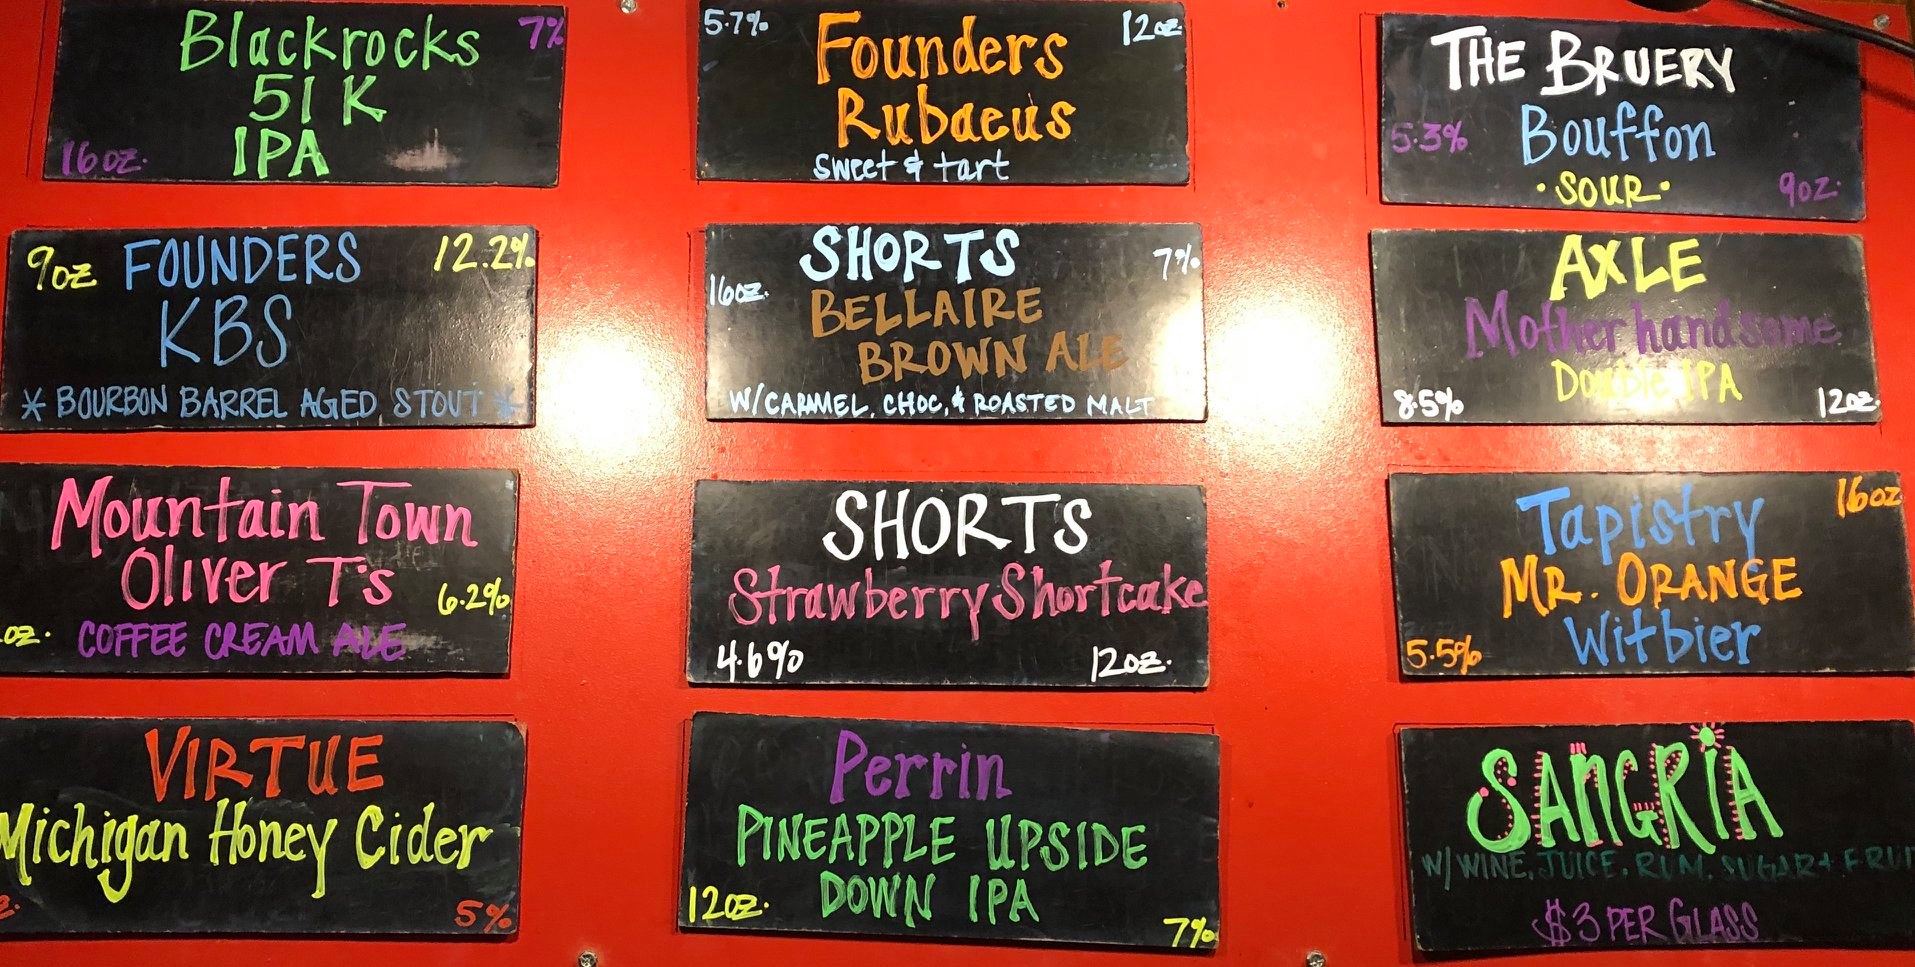 Blackrocks 7%
51K
IPA
16oz.
5.7% Founders 12oz.
Rubaeus
sweet & tart
THE BRUERY
Bouffon
5.3%
•SOUR•
9oz.
9oz FOUNDERS 12.2%
KBS
* BOURBON BARREL AGED STOUT *
SHORTS 7%
16oz.
BELLAIRE
BROWN ALE
W/CARAMEL, CHOC, & ROASTED MALT
AXLE
Mother handsome
Double IPA
8.5% 12oz.
Mountain Town
Oliver T's 6.2%
oz. COFFEE CREAM ALE
SHORTS
Strawberry Shortcake
4.6% 12oz.
Tapistry 16oz
MR. ORANGE
5.5% Witbier
VIRTUE
Michigan Honey Cider
5%
Perrin
PINEAPPLE UPSIDE
12oz. DOWN IPA
7%
SANGRIA
W/WINE, JUICE, RUM, SUGAR + FRUI
$3 PER GLASS